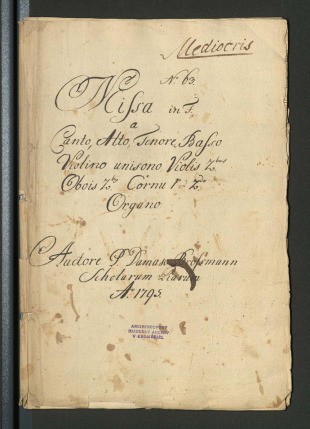 Mediocris
No. 63.
Missa in F.
a
Canto, Alto, Tenore, Basso
Violino unisono Violis 2bus
Obois 2bus Cornu 1mo 2do
Organo
Auctore P. Damaso Brosmann
Scholarum Piarum
Ao. 1795.
V KROMĚŘÍŽI.